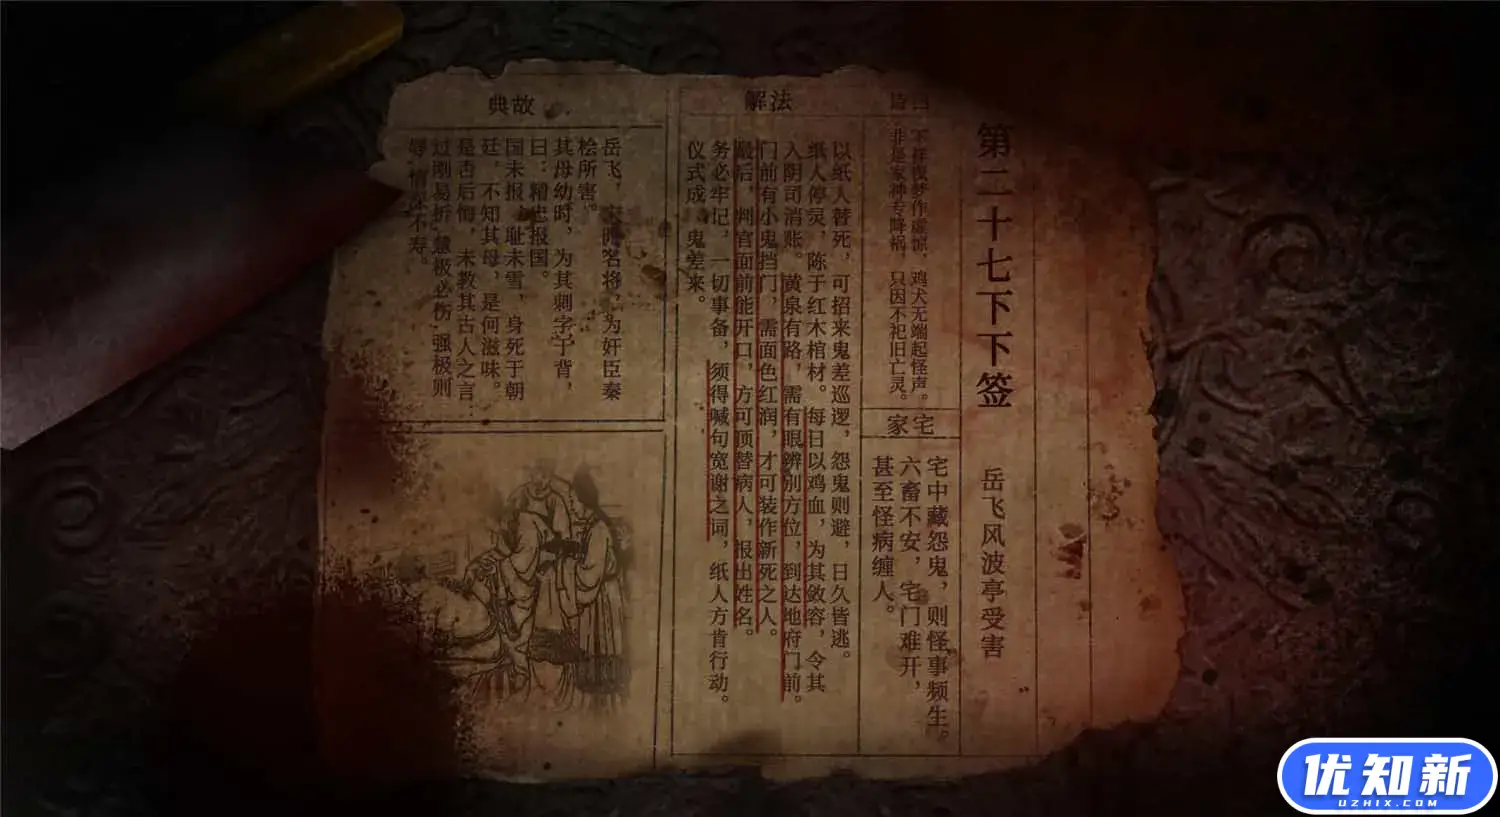 第二十七下下签
岳飞风波亭受害
诗曰
不祥夜梦作虚惊，鸡犬无端起怪声。
非是家神专降祸，只因不祀旧亡灵。
家宅
宅中藏怨鬼，则怪事频生。
六畜不安，宅门难开，
甚至怪病缠人。
解法
以纸人替死，可招来鬼差巡逻，怨鬼则避，日久皆逃。
纸人停灵，陈于红木棺材。每日以鸡血，为其敛容，令其
入阴司消账。黄泉有路，需有眼辨别方位，到达地府门前。
门前有小鬼挡门，需面色红润，才可装作新死之人。
最后，判官面前能开口，方可顶替病人，报出姓名。
务必牢记，一切事备，须得喊句宽谢之词，纸人方肯行动。
仪式成，鬼差来。
典故
岳飞，宋时名将，为奸臣秦
桧所害。
其母幼时，为其刺字于背，
曰：精忠报国。
国未报，耻未雪，身死于朝
廷，不知其母，是何滋味。
是否后悔，未教其古人之言：
过刚易折，慧极必伤，强极则
辱，情深不寿。
优知新
UZHIX.COM